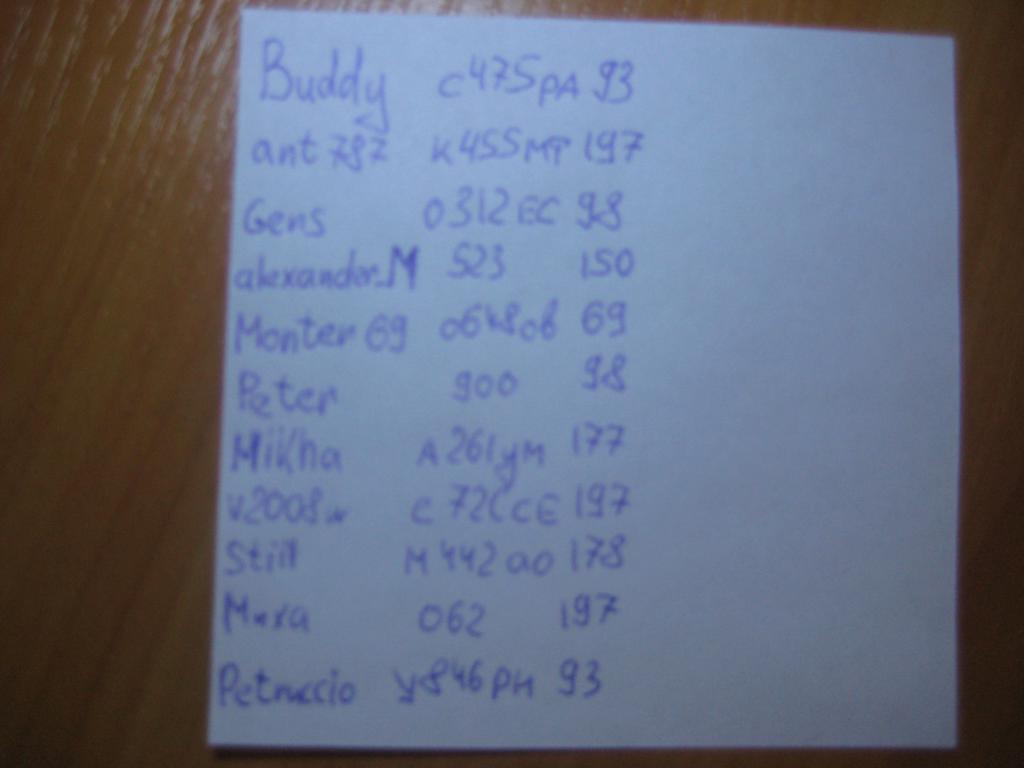 Buddy c475pA 93
ant 787 к455мт 197
Gens o312EC 98
alexander_M 523 150
Monter 69 o648ов 69
Peter 900 98
Mikha A261ум 177
v2008w c 197
Still м442ао 178
Миха 062 197
Petruccio у846рн 93